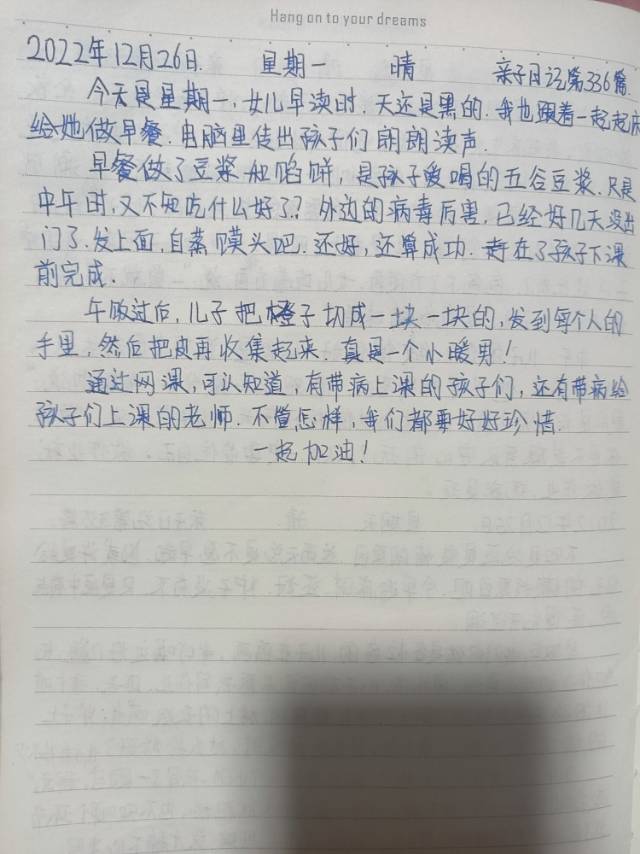 Hang on to your dreams
2022年12月26日. 星期一 晴 亲子日记第336篇.
今天是星期一,女儿早读时.天还是黑的.我也跟着一起起床
给她做早餐.电脑里传出孩子们朗朗读声.
早餐做了豆浆和馅饼,是孩子爱喝的五谷豆浆.只是
中午时,又不知吃什么好了?外边的病毒厉害,已经好几天没出
门了.发上面,自蒸馍头吧.还好,还算成功.在了孩子下课
前完成.
午饭过后,儿子把橙子切成一块一块的,发到每个人的
手里,然后把皮再收集起来.真是一个小暖男!
通过网课,可以知道,有带病上课的孩子们,还有带病给
孩子们上课的老师.不管怎样,我们都要好好珍惜.
一起加油!